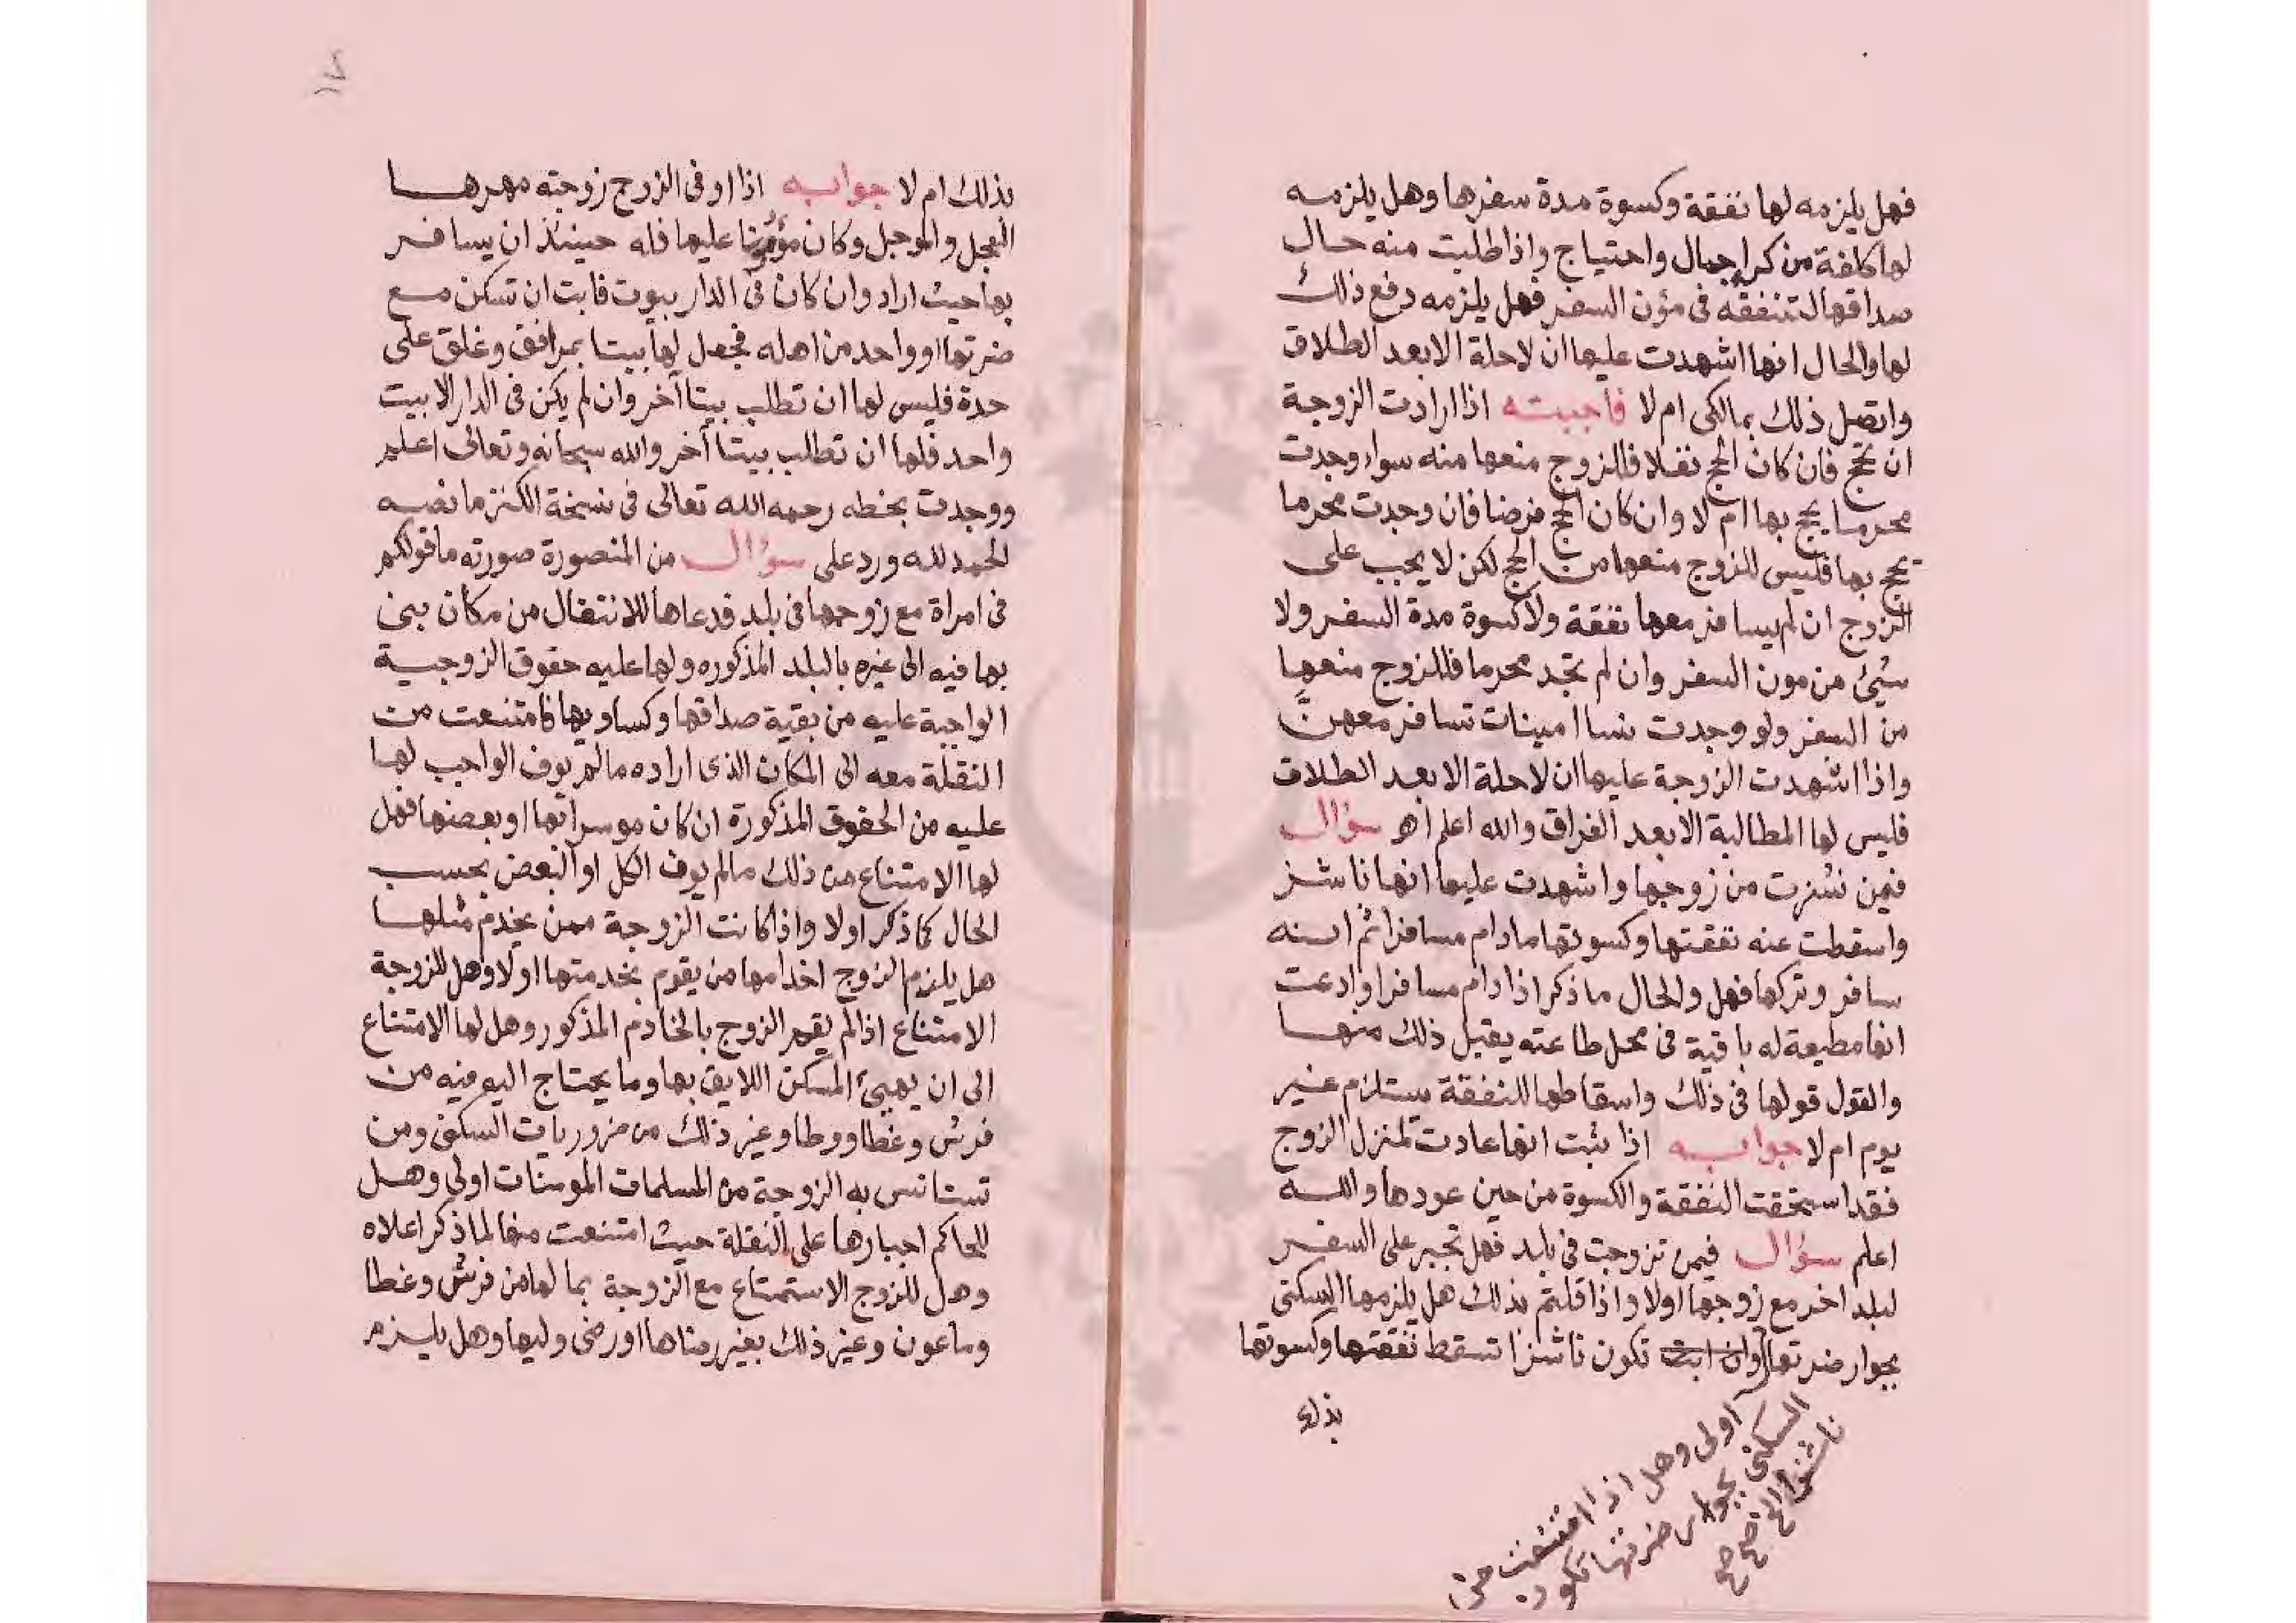 فهل يلزمه لها نفقة وكسوة مدة سفرها وهل يلزمه
لها كلفة من كراء جمال واحتياج واذا طلبت منه حال
صداقها لتنفقه فى مؤن السفر فهل يلزمه دفع ذلك
لها والحال انها اشهدت عليها ان لا حلة الا بعد الطلاق
واتصل ذلك بمالكى ام لا فأجبته اذا ارادت الزوجة
ان تحج فان كان الحج نفلا فللزوج منعها منه سواء وجدت
محرما يحج بها ام لا وان كان الحج فرضا فان وجدت محرما
يحج بها فليس للزوج منعها من الحج لكن لا يجب على
الزوج ان لم يسافر معها نفقة ولا كسوة مدة السفر ولا
شيئ من مون السفر وان لم تجد محرما فللزوج منعها
من السفر ولو وجدت نسا امينات تسافر معهن
واذا اشهدت الزوجة عليها ان لا حلة الا بعد الطلاق
فليس لها المطالبة الا بعد الفراق والله اعلم اهـ سؤال
فيمن نشزت من زوجها واشهدت عليها انها ناشز
واسقطت عنه نفقتها وكسوتها مادام مسافرا ثم انه
سافر وتركها فهل والحال ما ذكر اذا دام مسافرا وادعت
انها مطيعة له باقية فى محل طاعته يقبل ذلك منها
والقول قولها فى ذلك واسقاطها للنفقة يستلزم غير
يوم ام لا جوابه اذا ثبت انها عادت لمنزل الزوج
فقد استحقت النفقة والكسوة من حين عودها والله
اعلم سؤال فيمن تزوجت فى بلد فهل تجبر على السفر
لبلد اخر مع زوجها اولا واذا قلتم بذلك هل يلزمها السكنى
بجوار ضرتها وان ابت تكون ناشزا تسقط نفقتها وكسوتها
بذلك
اولى وهل اذا امتنعت من
السكنى بجوار ضرتها تكون
ناشزا الخ صح صح
بذلك ام لا جوابه اذا اوفى الزوج زوجته مهرها
المعجل والموجل وكان مؤمنا عليها فله حينئذ ان يسافر
بها حيث اراد وان كان فى الدار بيوت فابت ان تسكن مع
ضرتها او واحد من اهله فجعل لها بيتا بمرافق وغلق على
حدة فليس لها ان تطلب بيتا آخر وان لم يكن فى الدار الا بيت
واحد فلها ان تطلب بيتا آخر والله سبحانه وتعالى اعلم
ووجدت بخطه رحمه الله تعالى فى نسخة الكنز ما نصه
الحمد لله ورد على سؤال من المنصورة صورته ما قولكم
فى امراة مع زوجها فى بلد فدعاها للانتقال من مكان بنى
بها فيه الى غيره بالبلد المذكوره ولها عليه حقوق الزوجية
الواجبة عليه من بقية صداقها وكساويها فامتنعت من
النقلة معه الى المكان الذى اراده مالم يوف الواجب لها
عليه من الحقوق المذكورة ان كان موسرا بها او بعضها فهل
لها الامتناع من ذلك مالم يوف الكل او البعض بحسب
الحال كما ذكر اولا واذا كانت الزوجة ممن يخدم مثلها
هل يلزم الزوج اخدامها من يقوم بخدمتها اولا وهل للزوجة
الامتناع اذا لم يقم الزوج بالخادم المذكور وهل لها الامتناع
الى ان يهيئ المسكن اللايق بها وما يحتاج اليه فيه من
فرش وغطا ووطا وغير ذلك من ضروريات السكنى ومن
تستانس به الزوجة من المسلمات المومنات اولى وهل
للحاكم اجبارها على النقلة حيث امتنعت منها لما ذكر اعلاه
وهل للزوج الاستمتاع مع الزوجة بما لها من فرش وغطا
وماعون وغير ذلك بغير رضاها او رضى وليها وهل يلزم